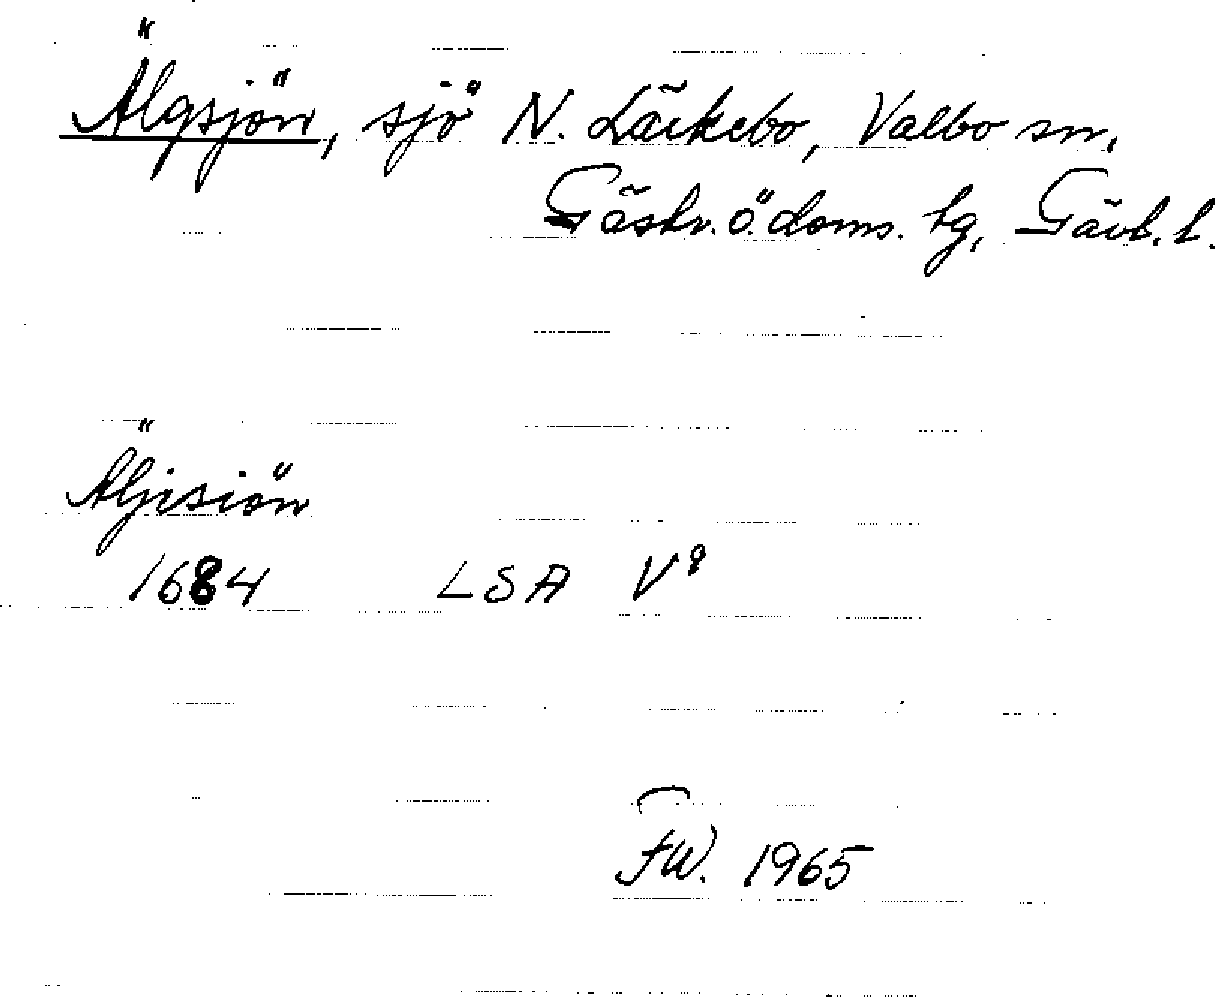 Älgsjön, sjö N. Läckebo, Valbo sn,
Gästr. ö. doms. tg, Gävl. l.
Äljisiön
1684 LSA V⁹
FW. 1965